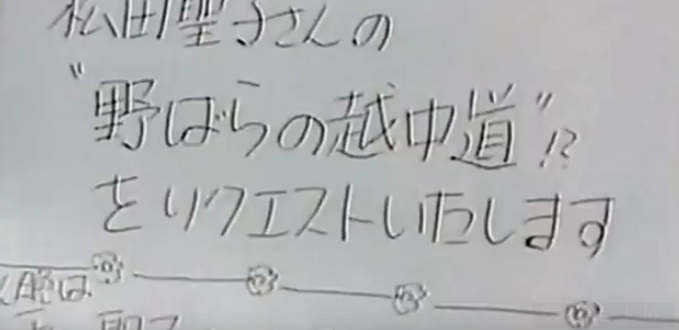 松田聖子さんの
"野ばらの越中道"!?
をリクエストいたします